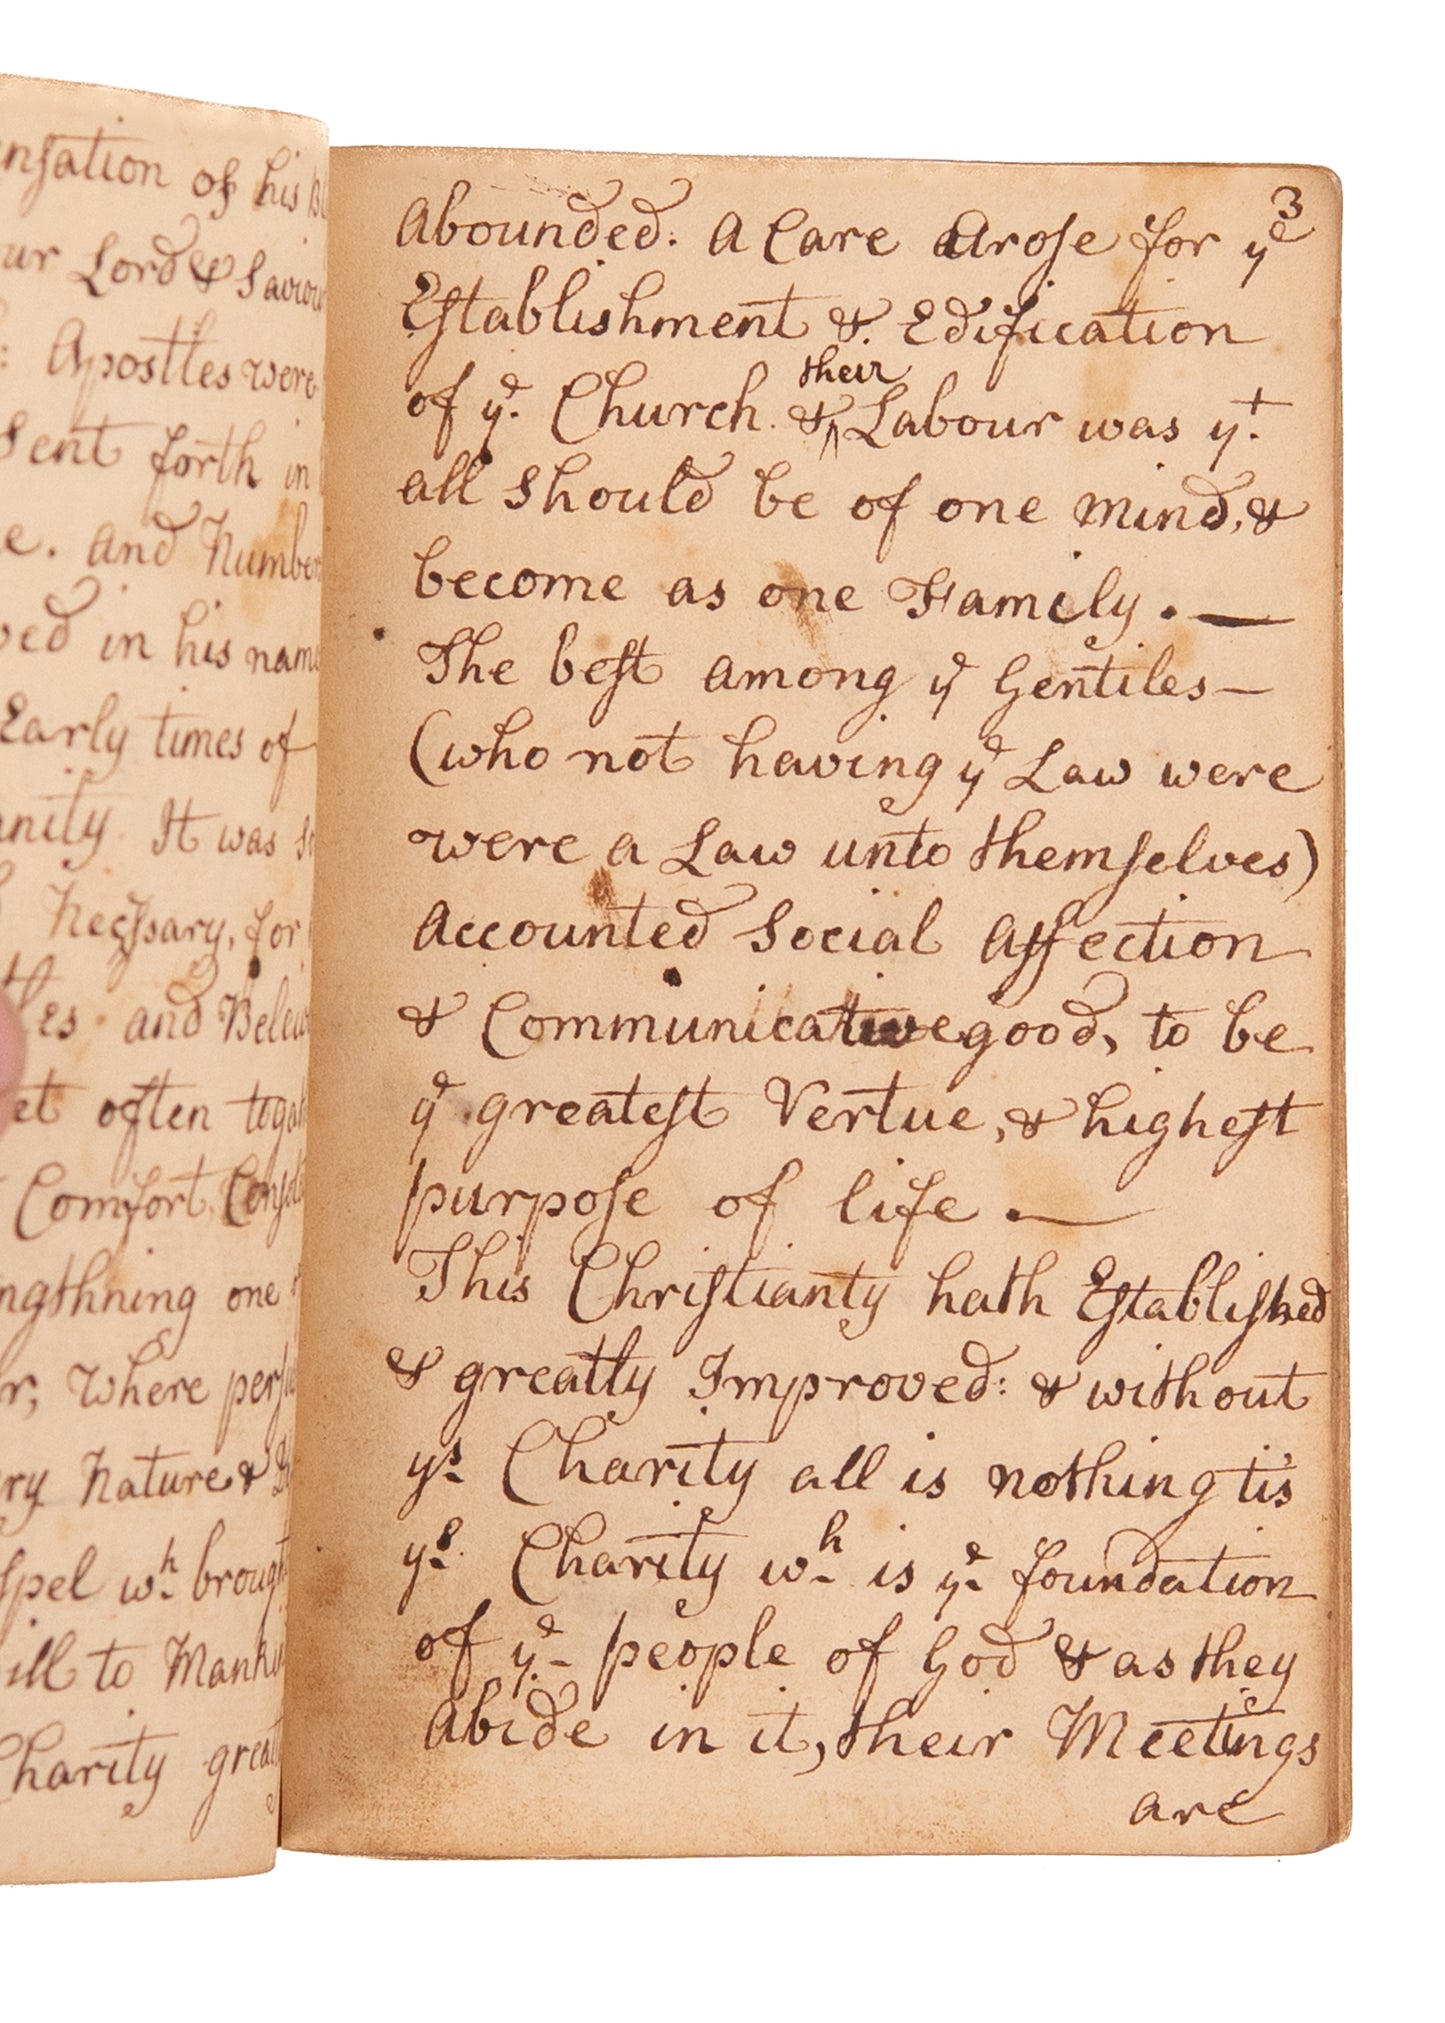 ensation of his
our Lord & Saviour
: Apostles were
Sent forth in
e. and Number
ved in his name
Early times of
anity. It was
Necessary, for
tles and Believ
et often togath
Comfort, Consol
ngthning one
r, where perf
ry Nature &
spel wʰ brought
ill to Mankin
Charity great
3
Abounded. A Care Arose for yᵉ
Eſtabliſhment & Edification
of yᵉ. Church. & ‸their Labour was yᵗ.
all should be of one mind, &
become as one Family. —
The beſt among yᵉ Gentiles —
(who not having yᵉ Law were
were a Law unto themſelves)
Accounted Social Affection
& Communicative good, to be
yᵉ greateſt Vertue, & higheſt
purpoſe of life. —
This Chriſtianty hath Eſtabliſhed
& greatly Improved: & without
yˢ Charity all is nothing tis
yˢ. Charity wʰ is yᵉ foundation
of yᵉ people of God & as they
Abide in it, their Meetings
are